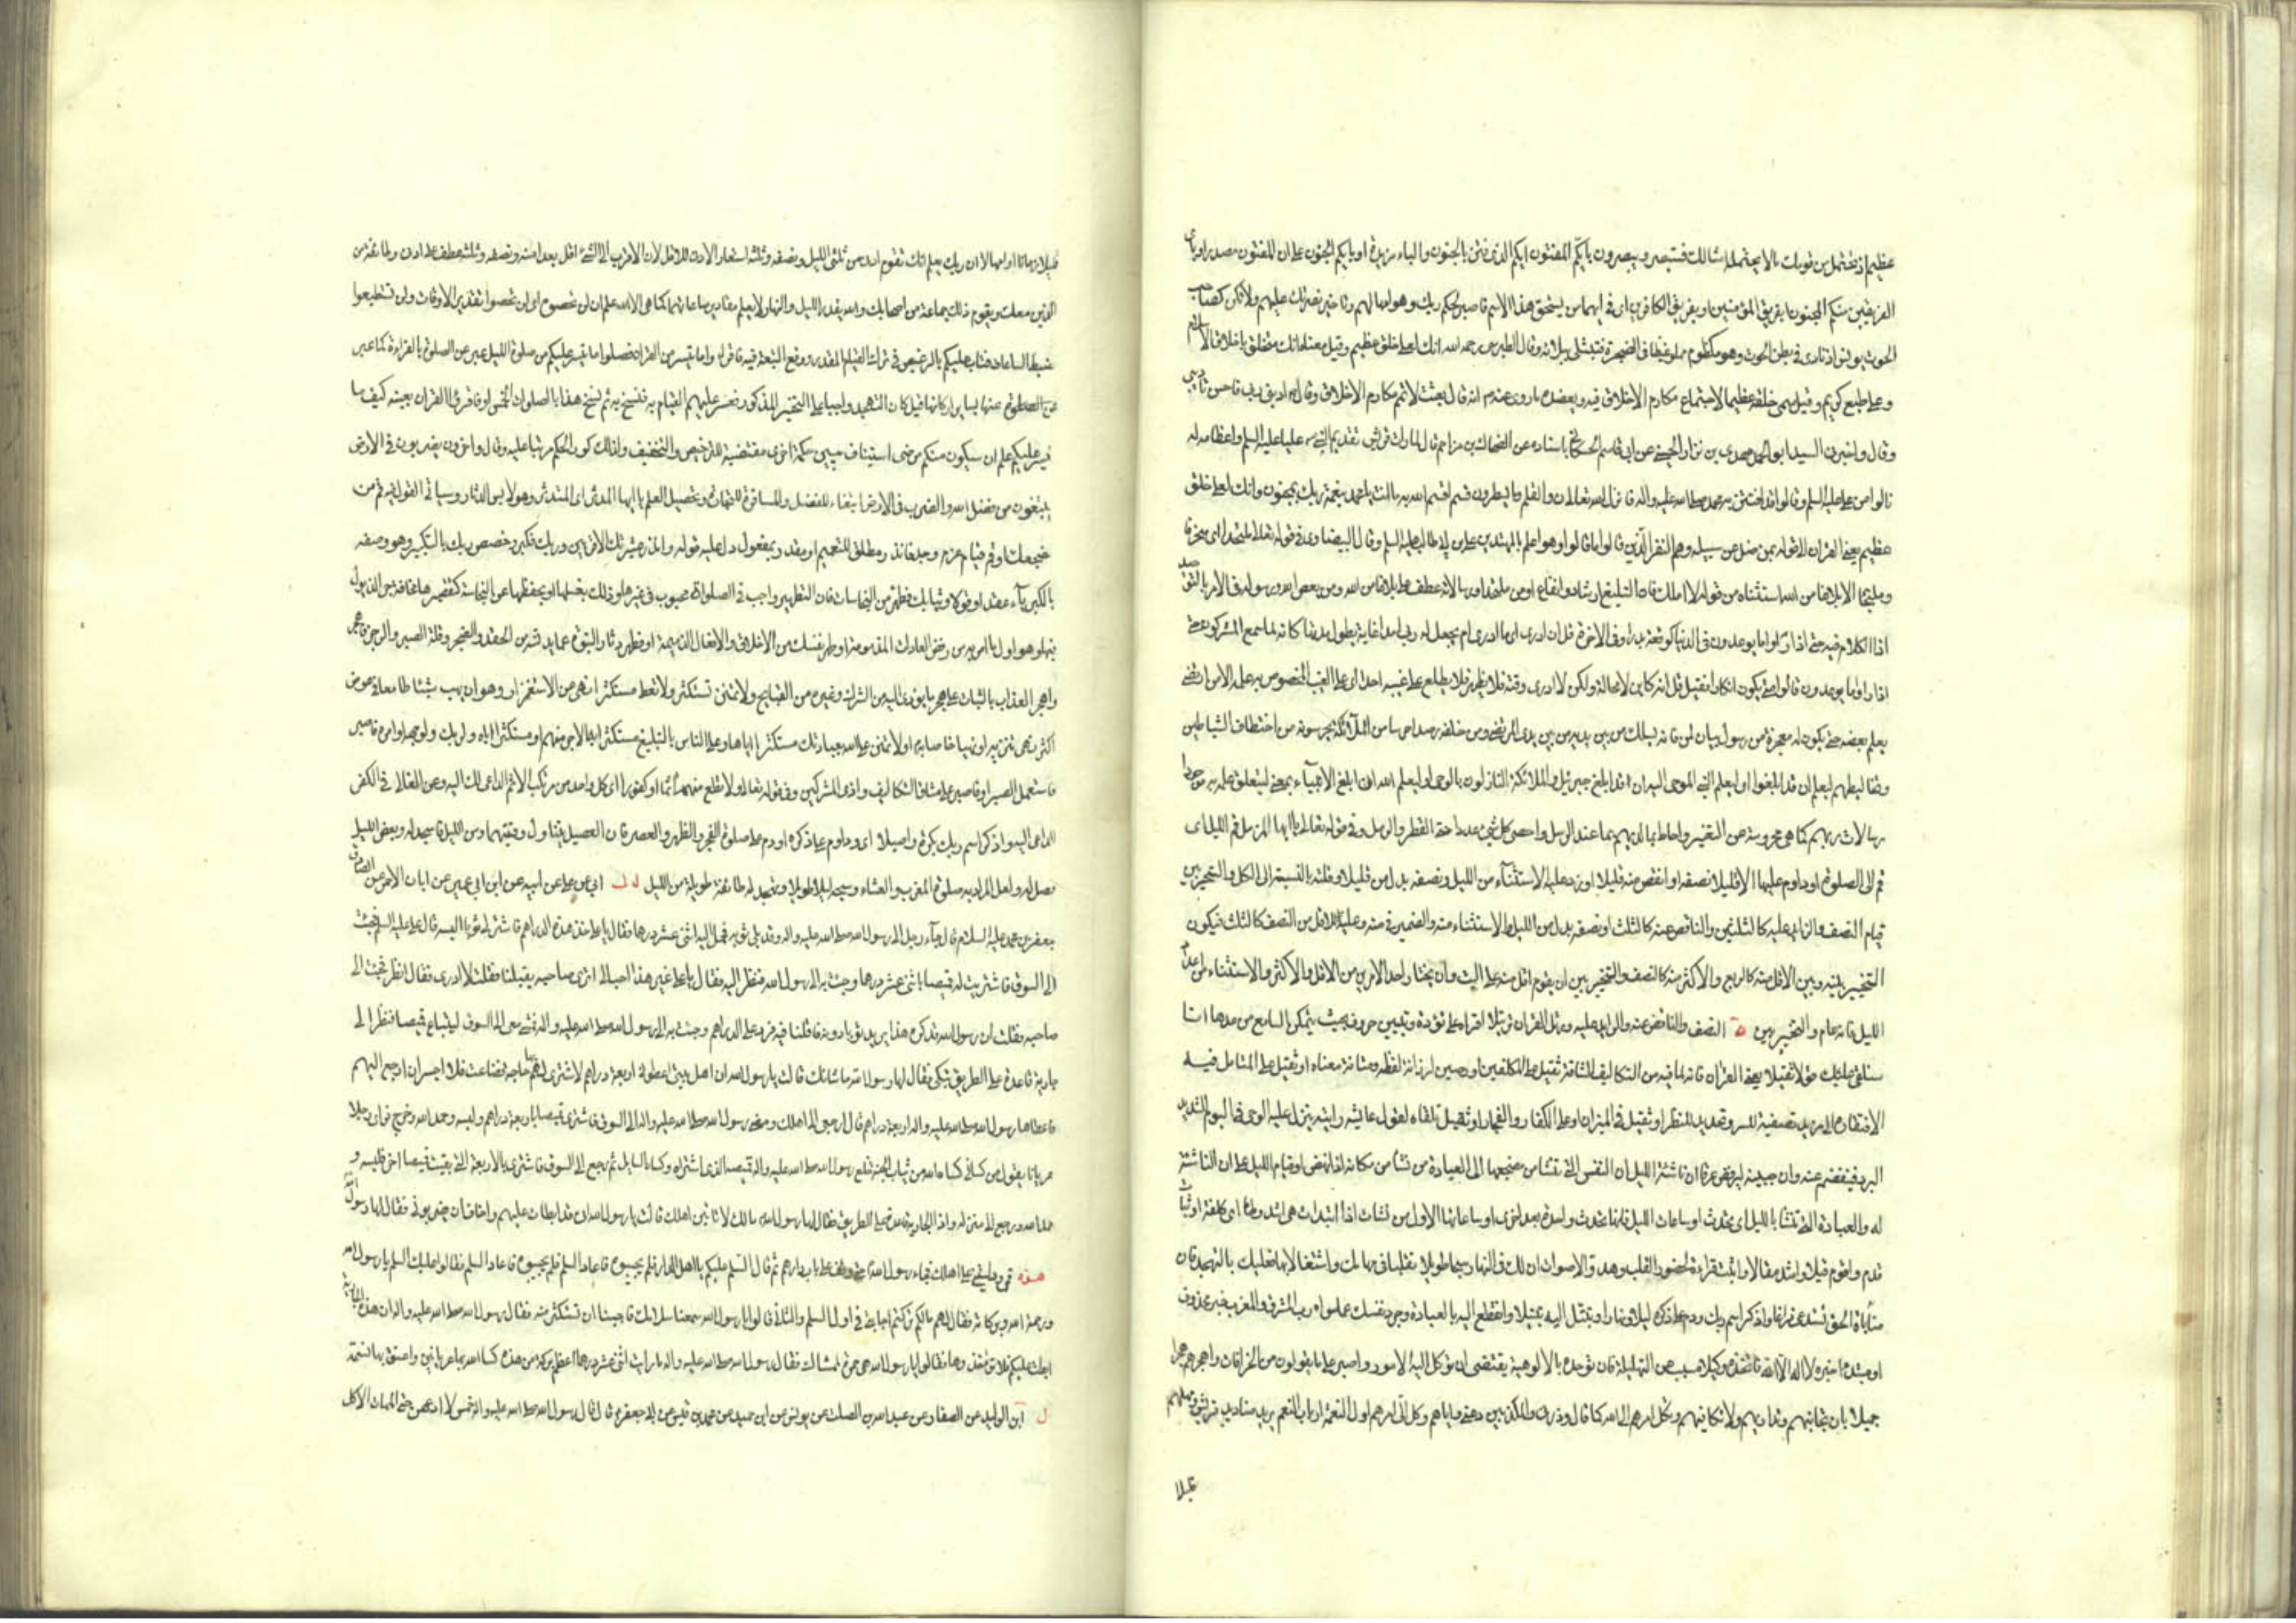 عظيم اذ تحتمل من قومك ما لا يحتمله امثالك فستبصر ويبصرون بايكم المفتون ايكم الذي فتن بالجنون والباء مزيدة او بايكم الجنون على ان المفتون مصدر او باى
الفريقين منكم الجنون ابفريق المؤمنين او بفريق الكافرين اى فى ايهما من يستحق هذا الاسم فاصبر لحكم ربك وهو امهالهم وتاخير نصرتك عليهم ولا تكن كصاحب
الحوت يونس اذ نادى فى بطن الحوت وهو مكظوم مملو غيظا فى الضجرة فتبتلى ببلائه وقال الطبرسى رحمه الله انك لعلى خلق عظيم وقيل معناه انك متخلق باخلاق الاسلام
وعلى طبع كريم وقيل سمى خلقه عظيما لاجتماع مكارم الاخلاق فيه ويعضده ما روى عنه م انه قال بعثت لاتمم مكارم الاخلاق وقال م ادبنى ربى فاحسن تاديبى
وقال واخبرنى السيد ابو الحمد مهدى بن نزار الحسنى عن ابى القاسم الحسكانى باسناده عن الضحاك بن مزاحم قال لما رات قريش تقديم النبى ص عليا عليه السلم واعظامه له
نالوا من على عليه السلم وقالوا قد افتتن به محمد صلى الله عليه واله فانزل الله تعالى ن والقلم وما يسطرون قسم اقسم الله به ما انت يا محمد بنعمة ربك بمجنون وانك لعلى خلق
عظيم يعنى القران الى قوله بمن ضل عن سبيله وهم النفر الذين قالوا ما قالوا وهو اعلم بالمهتدين على بن ابى طالب عليه السلم وقال البيضاوى فى قوله تعالى ملتحدا اى منحرفا
وملتجا الا بلاغا من الله استثناء من قوله لا املك فان التبليغ ارشاد وانفاع او من ملتحدا ورسالاته عطف على بلاغا من الله ومن يعص الله ورسوله فى الامر بالتوحيد
اذ الكلام فيه حتى اذا راوا ما يوعدون فى الدنيا كوقعة بدر او فى الاخرة قل ان ادرى اى ما ادرى ام يجعل له ربى امدا غاية يطول مدتها كانه لما سمع المشركون حتى
اذا راوا ما يوعدون قالوا متى يكون انكارا فقيل قل انه كاين لا محالة ولكن لا ادرى وقته فلا يظهر فلا يطلع على غيبه احدا اى على الغيب المخصوص به علمه الا من ارتضى
يعلم بعضه حتى يكون له معجزة من رسول بيان لمن فانه يسلك من بين يديه من بين يدى المرتضى ومن خلفه رصدا حرسا من الملآئكة يحرسونه من اختطاف الشياطين
وتخاليطهم ليعلم ان قد ابلغوا اى ليعلم النبى الموحى اليه ان قد ابلغ جبريل والملائكة النازلون بالوحى او ليعلم الله ان ابلغ الانبيآء بمعنى ليتعلق علمه به موجودا
رسالات ربهم كما هى محروسة من التغيير واحاط بما لديهم بما عند الرسل واحصى كل شئ عددا حتى القطر والرمل وفى قوله تعالى يا ايها المزمل قم الليل اى
قم الى الصلوة او داوم عليها الا قليلا نصفه او انقص منه قليلا او زد عليه الاستثنآء من الليل ونصفه بدل من قليلا وقلته بالنسبة الى الكل والتخيير بين
قيام النصف والزايد عليه كالثلثين والناقص عنه كالثلث او نصفه بدل من الليل والاستثناء منه والضمير فى منه وعليه للاقل من النصف كالثلث فيكون
التخيير بينه وبين الاقل منه كالربع والاكثر منه كالنصف والتخيير بين ان يقوم اقل منه على البت وان يختار واحد الامرين من الاقل والاكثر والاستثناء من اعداد
الليل فانه عام والتخيير بين النصف والناقص عنه والزايد عليه ورتل القران ترتيلا اقراه على تؤدة وتبيين حروف بحيث يتمكن السامع من عدها انا
سنلقى عليك قولا ثقيلا يعنى القران فانه لما فيه من التكاليف الشاقة ثقيل على المكلفين او رصين لرزانة لفظه ومتانة معناه او ثقيل على المتامل فيه
لافتقاره الى مزيد تصفية للسر وتجديد للنظر او ثقيل فى الميزان او على الكفار والفجار او ثقيل تلقاه لقول عائشه رايته ينزل عليه الوحى فى اليوم الشديد
البرد فيفصم عنه وان جبينه ليرفض عرقا ان ناشئة الليل ان النفس التى تنشا من مضجعها الى العبادة من نشا من مكانه اذا نهض او قيام الليل على ان الناشئة
له والعبادة التى تنشا بالليل اى تحدث او ساعات الليل فانها تحدث واحدة بعد اخرى او ساعاتها الاول من نشات اذا ابتدات هى اشد وطئا اى كلفة او ثبات
قدم واقوم قيلا واشد مقالا واثبت قراءة لحضور القلب وهدوّ الاصوات ان لك فى النهار سبحا طويلا تقلبا فى مهامك واشتغالا بها فعليك بالتهجد فان
مناجاة الحق تستدعى فراغا واذكر اسم ربك ودم على ذكره ليلا ونهارا وتبتل اليه تبتيلا وانقطع اليه بالعبادة وجرد نفسك عما سواه رب المشرق والمغرب خبر محذوف
او مبتدا خبره لا اله الا الله فاتخذه وكيلا مسبب عن التهليلة فان توحده بالالوهية يقتضى ان توكل اليه الامور واصبر على ما يقولون من الخرافات واهجرهم هجرا
جميلا بان تجانبهم وتداريهم ولا تكافيهم وتكل امرهم الى الله كما قال وذرنى والمكذبين دعنى واياهم وكل الى امرهم اولى النعمة ارباب التنعم يريد صناديد قريش ومهلهم
قليلا زمانا او امهالا ان ربك يعلم انك تقوم ادنى من ثلثى الليل ونصفه وثلثه استعار الادنى للاقل لان الاقرب الى الشئ اقل بعدا منه ونصفه وثلثه عطف على ادنى وطائفة من
الذين معك ويقوم ذلك جماعة من اصحابك والله يقدر الليل والنهار لا يعلم مقادير ساعاتهما كما هى الا الله علم ان لن تحصوه اى لن تحصوا تقدير الاوقات ولن تستطيعوا
ضبط الساعات فتاب عليكم بالترخيص فى ترك القيام المقدر ورفع التبعة فيه فاقرؤا ما تيسر من القران فصلوا ما تيسر عليكم من صلوة الليل عبر عن الصلوة بالقراءة كما عبر
عنها بساير اركانها قيل كان التهجد واجبا على التخيير المذكور فعسر عليهم القيام به فنسخ به ثم نسخ هذا بالصلوات الخمس او فاقرؤا القران بعينه كيف ما
تيسر عليكم علم ان سيكون منكم مرضى استيناف يبين حكمة اخرى مقتضية للترخيص والتخفيف ولذلك كرر الحكم مرتبا عليه وقال واخرون يضربون فى الارض
يبتغون من فضل الله والضرب فى الارض ابتغاء للفضل والمسافرة للتجارة وتحصيل العلم يا ايها المدثر اى المتدثر وهو لابس الدثار وسياتى القول فيه قم من
مضجعك او قم قيام عزم وجد فانذر مطلق للتعميم او مقدر بمفعول دل عليه قوله وانذر عشيرتك الاقربين وربك فكبر وخصص ربك بالتكبير وهو وصفه
بالكبريآء عقدا وقولا وثيابك فطهر من النجاسات فان التطهير واجب فى الصلوات محبوب فى غيرها وذلك بغسلها او بحفظها عن النجاسة كتقصيرها مخافة جر الذيول
فيها وهو اول ما امر به من رفض العادات المذمومة او طهر نفسك من الاخلاق والافعال الذميمة او فطهر دثار النبوة عما يدنسه من الحقد والضجر وقلة الصبر والرجز فاهجر
واهجر العذاب بالثبات على هجر ما يؤدى اليه من الشرك وغيره من القبايح ولا تمنن تستكثر ولا تعط مستكثرا نهى عن الاستغزار وهو ان يهب شيئا طامعا فى عوض
اكثر نهى تنزيه او نهيا خاصا به او لا تمنن على الله بعبادتك مستكثرا اياها او على الناس بالتبليغ مستكثرا به الاجر منهم او مستكثرا اياه ولربك ولوجهه او امره فاصبر
فاستعمل الصبر او فاصبر على مشاق التكاليف واذى المشركين وفى قوله تعالى ولا تطع منهم آثما او كفورا اى كل واحد من مرتكب الاثم الداعى لك اليه ومن الغالى فى الكفر
الداعى اليه واذكر اسم ربك بكرة واصيلا اى وداوم على ذكره او دم على صلوة الفجر والظهر والعصر فان الاصيل يتناول وقتيهما ومن الليل فاسجد له وبعض الليل
فصل له ولعل المراد به صلوة المغرب والعشاء وسبحه ليلا طويلا وتهجد له طائفة طويلة من الليل ل ابى عن على عن ابيه عن ابن ابى عمير عن ابان الاحمر عن الصادق
جعفر بن محمد عليه السلام قال جآء رجل الى رسول الله صلى الله عليه واله وقد بلى ثوبه فحمل اليه اثنى عشر درهما فقال يا على خذ هذه الدراهم فاشتر لى ثوبا البسه قال على عليه السلم فجئت
الى السوق فاشتريت له قميصا باثنى عشر درهما وجئت به الى رسول الله فنظر اليه فقال يا على غير هذا احب الى اترى صاحبه يقيلنا فقلت لا ادرى فقال انظر فجئت الى
صاحبه فقلت ان رسول الله قد كره هذا يريد ثوبا دونه فاقلنا فيه فرد على الدراهم وجئت به الى رسول الله صلى الله عليه واله فمشى معى الى السوق ليبتاع قميصا فنظر الى
جارية قاعدة على الطريق تبكى فقال لها رسول الله ما شانك قالت يا رسول الله ان اهل بيتى اعطونى اربعة دراهم لاشترى لهم بها حاجة فضاعت فلا اجسر ان ارجع اليهم
فاعطاها رسول الله صلى الله عليه واله اربعة دراهم قال ارجعى الى اهلك ومضى رسول الله صلى الله عليه واله الى السوق فاشترى قميصا باربعة دراهم ولبسه وحمد الله وخرج فراى رجلا
عريانا يقول من كسانى كساه الله من ثياب الجنة فخلع رسول الله صلى الله عليه واله قميصه الذى اشتراه وكساه السايل ثم رجع الى السوق فاشترى بالاربعة التى بقيت قميصا اخر فلبسه و
حمد الله ورجع الى منزله واذا الجارية قاعدة على الطريق فقال لها رسول الله مالك لا تاتين اهلك قالت يا رسول الله انى قد ابطات عليهم واخاف ان يضربونى فقال لها رسول الله
مرى بين يدى ودلينى على اهلك فجاء رسول الله حتى وقف على باب دارهم ثم قال السلم عليكم يا اهل الدار فلم يجيبوه فاعاد السلم فلم يجيبوه فاعاد السلم فقالوا عليك السلم يا رسول الله
ورحمة الله وبركاته فقال لهم مالكم تركتم اجابتى فى اول السلم والثانى قالوا يا رسول الله سمعنا سلامك فاحببنا ان تستكثر منه فقال رسول الله صلى الله عليه واله ان هذه الجارية
ابطات عليكم فلا تؤاخذوها فقالوا يا رسول الله هى حرة لممشاك فقال رسول الله صلى الله عليه واله ما رايت اثنى عشر درهما اعظم بركة من هذه كسا الله بها عريانين واعتق بها نسمة
ل ابن الوليد عن الصفار عن عبد الله بن الصلت عن يونس عن ابن حميد عن محمد بن قيس عن ابى جعفر م قال قال رسول الله صلى الله عليه واله خمس لا ادعهن حتى الممات الاكل
عملا